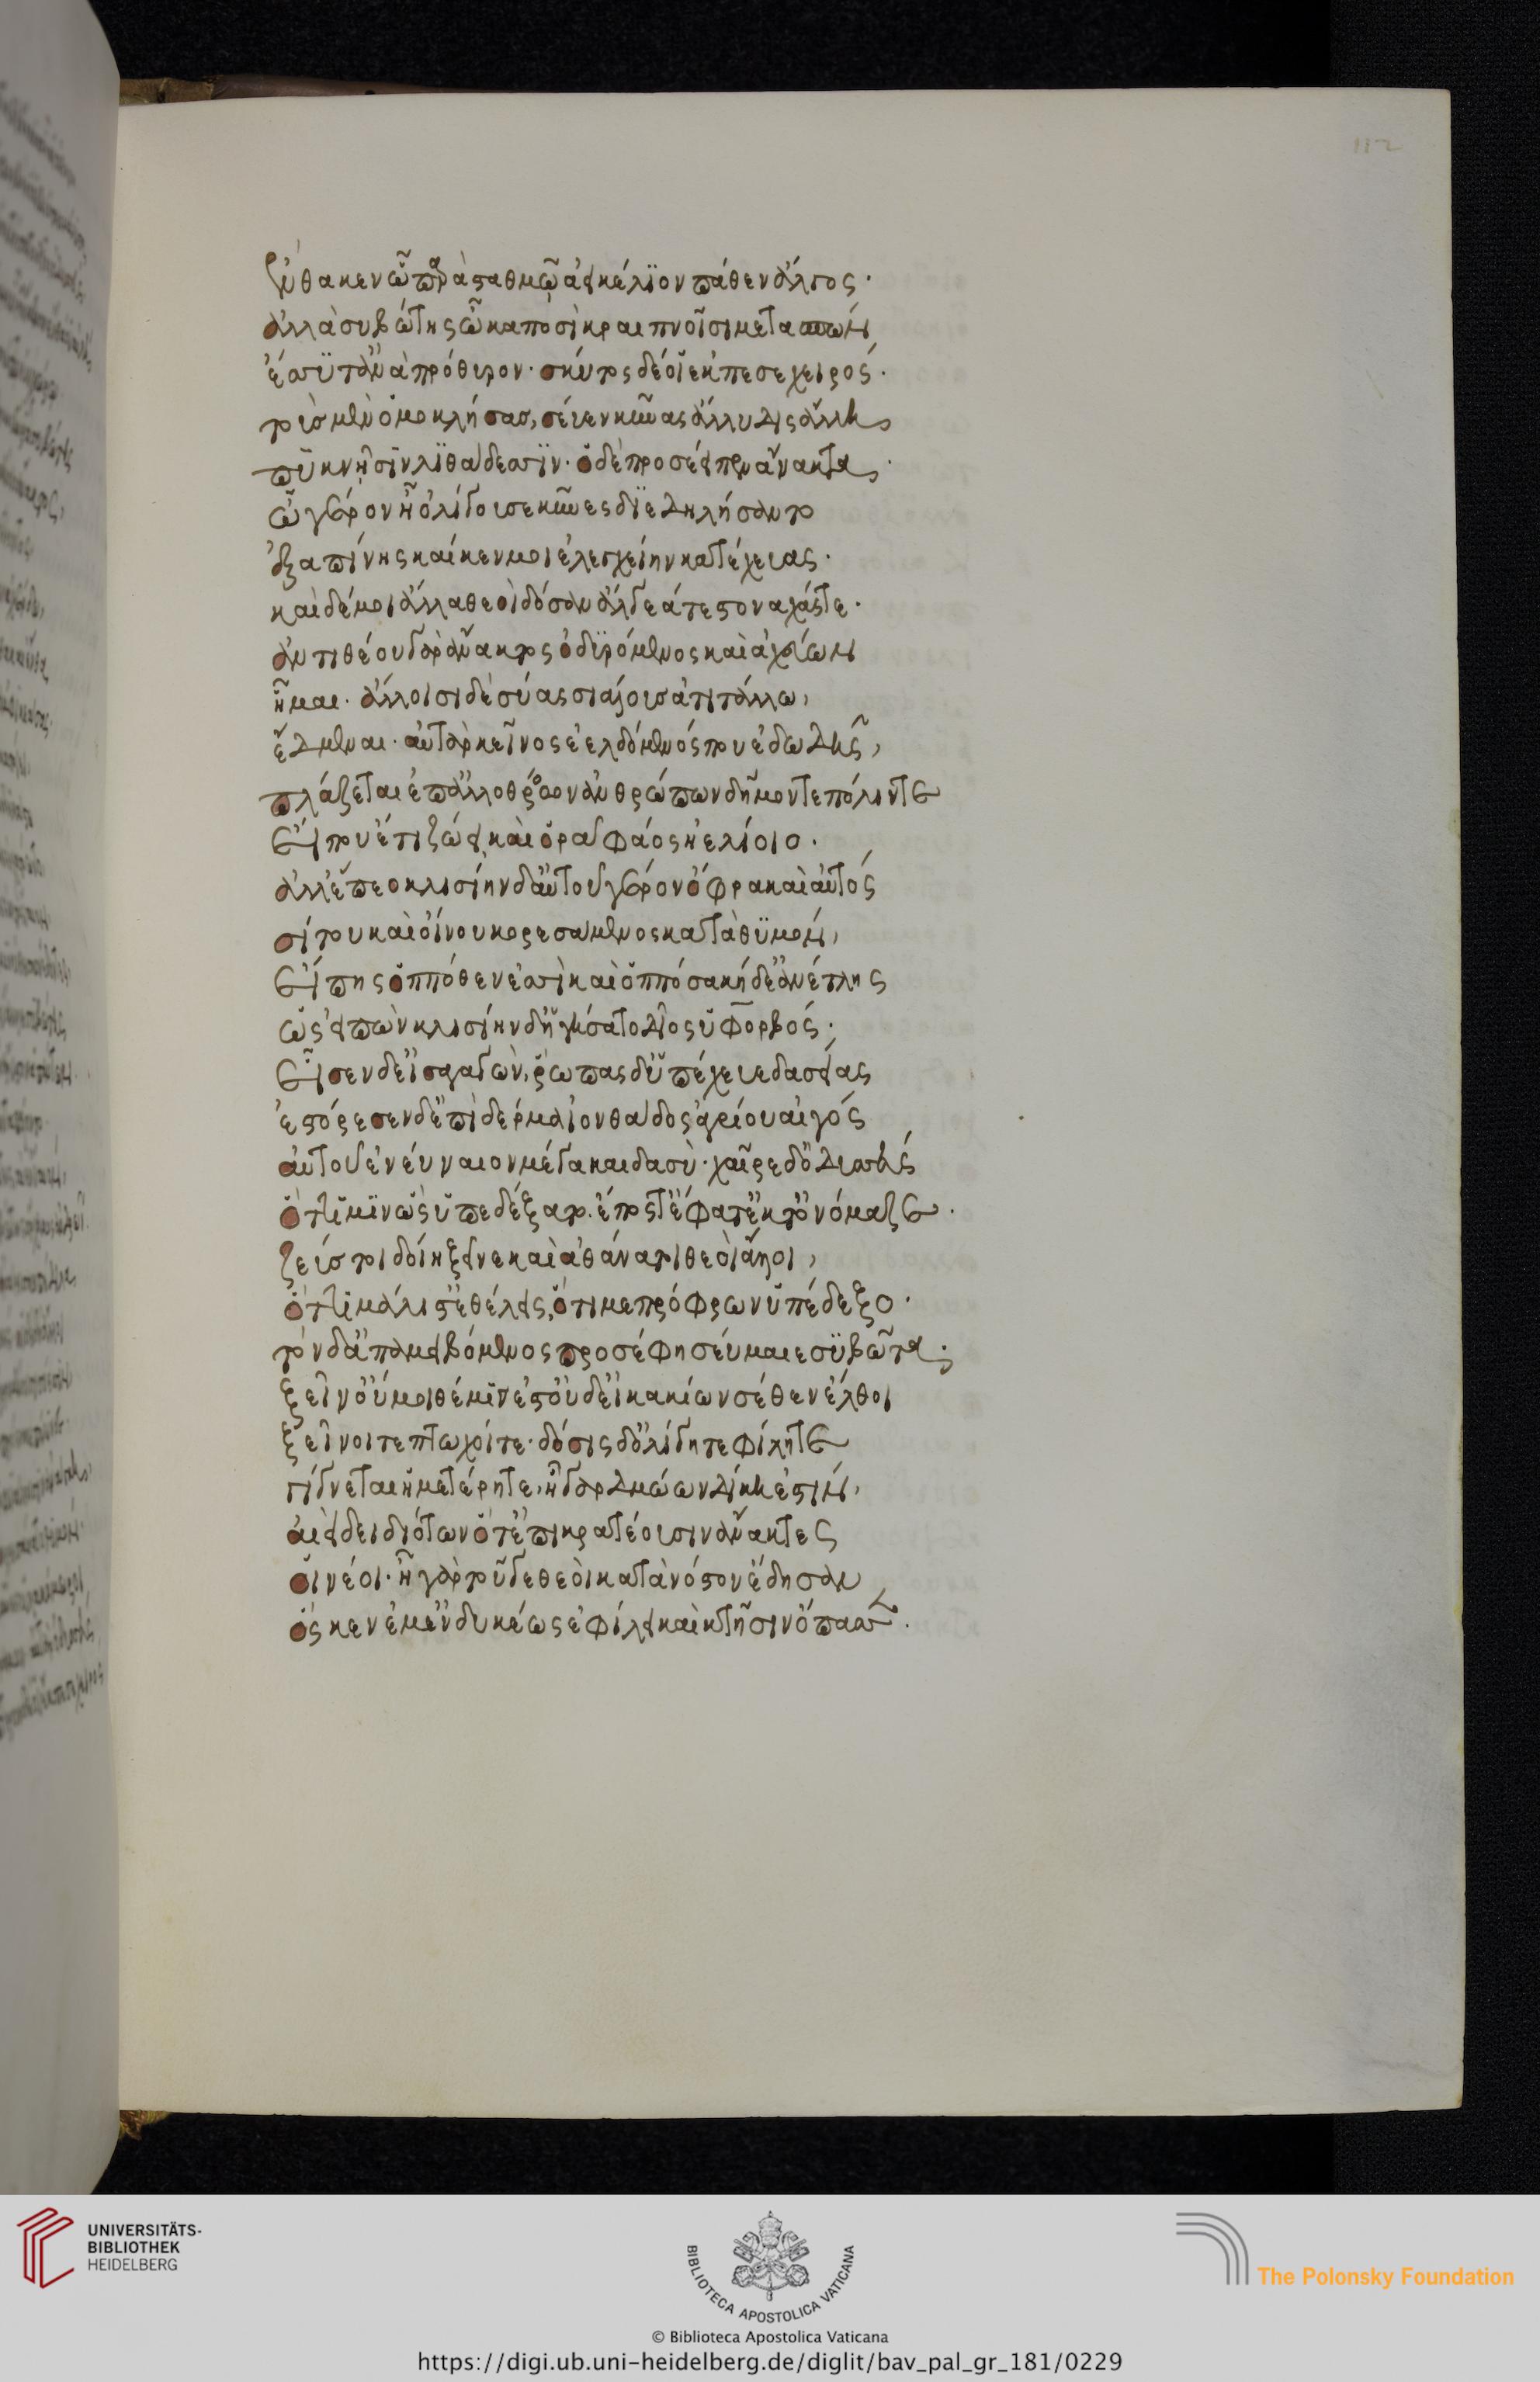 112
ἔνθα κεν ᾧ παρὰ σταθμῷ ἀεικέλιον πάθεν ἄλγος·
ἀλλὰ συβώτης ὦκα ποσὶ κραιπνοῖσι μετασπὼν
ἔσσυτ' ἀνὰ πρόθυρον· σκύτος δέ οἱ ἔκπεσε χειρός·
τοὺς μὲν ὁμοκλήσας, σεῦεν κύνας ἄλλυδις ἄλλη,
πυκνῇσιν λιθάδεσσιν· ὁ δὲ προσέειπεν ἄνακτα,
ὦ γέρον ἦ ὀλίγου σε κύνες διεδηλήσαντο
ἐξαπίνης καί κεν μοι ἐλεγχείην κατέχευας·
καὶ δέ μοι ἄλλα θεοὶ δόσαν ἄλγεά τε στοναχάς τε·
ἀντιθέου γὰρ ἄνακτος ὀδυρόμενος καὶ ἀχεύων
ἧμαι· ἄλλοισι δὲ σύας σιάλους ἀτιτάλλω,
ἔδμεναι· αὐτὰρ κεῖνος ἐελδόμενός που ἐδωδῆς,
πλάζεται ἐπ' ἀλλοθρόων ἀνθρώπων δῆμόν τε πόλιν τε
εἴ που ἔτι ζώει καὶ ὁρᾷ φάος ἠελίοιο·
ἀλλ' ἕπεο κλισίην δ' αὐτοῦ γέρον ὄφρα καὶ αὐτός
σίτου καὶ οἴνου κορεσάμενος κατὰ θυμὸν,
εἴπῃς ὁππόθεν ἐσσὶ καὶ ὁππόσα κήδε' ἀνέτλης
ὣς εἰπὼν κλισίην δ' ἡγήσατο δῖος ὑφορβός·
εἷσεν δ' εἰσαγαγών, ῥῶπας δ' ὑπέχευε δασείας
ἐστόρεσεν δ' ἐπὶ δέρμα ἰονθάδος ἀγρίου αἰγός
αὐτοῦ ἐνεύναιον μέγα καὶ δασύ· χαῖρε δ' Ὀδυσσεύς
ὅττί μιν ὣς ὑπεδέξατο· ἔπος τ' ἔφατ' ἔκ τ' ὀνόμαζε·
ζεύς τοι δοίη ξεῖνε καὶ ἀθάνατοι θεοὶ ἄλλοι,
ὅττι μάλιστ' ἐθέλεις, ὅτι με πρόφρων ὑπέδεξο·
τὸν δ' ἀπαμειβόμενος προσέφης εὔμαιε συβῶτα·
ξεῖν' οὔ μοι θέμις ἔστ' οὐδ' εἰ κακίων σέθεν ἔλθοι
ξεῖνοί τε πτωχοί τε· δόσις δ' ὀλίγη τε φίλη τε
γίγνεται ἡμετέρη τε, ἡ γὰρ δμώων δίκη ἐστὶν,
αἰεὶ δειδιότων ὅτ' ἐπικρατέουσιν ἄνακτες
οἱ νέοι· ἦ γὰρ τοῦγε θεοὶ κατὰ νόστον ἔδησαν
ὅς κεν ἔμ' ἐνδυκέως ἐφίλει καὶ κτῆσιν ὄπασσεν·
UNIVERSITÄTS-
BIBLIOTHEK
HEIDELBERG
BIBLIOTECA APOSTOLICA VATICANA
The Polonsky Foundation
© Biblioteca Apostolica Vaticana
https://digi.ub.uni-heidelberg.de/diglit/bav_pal_gr_181/0229